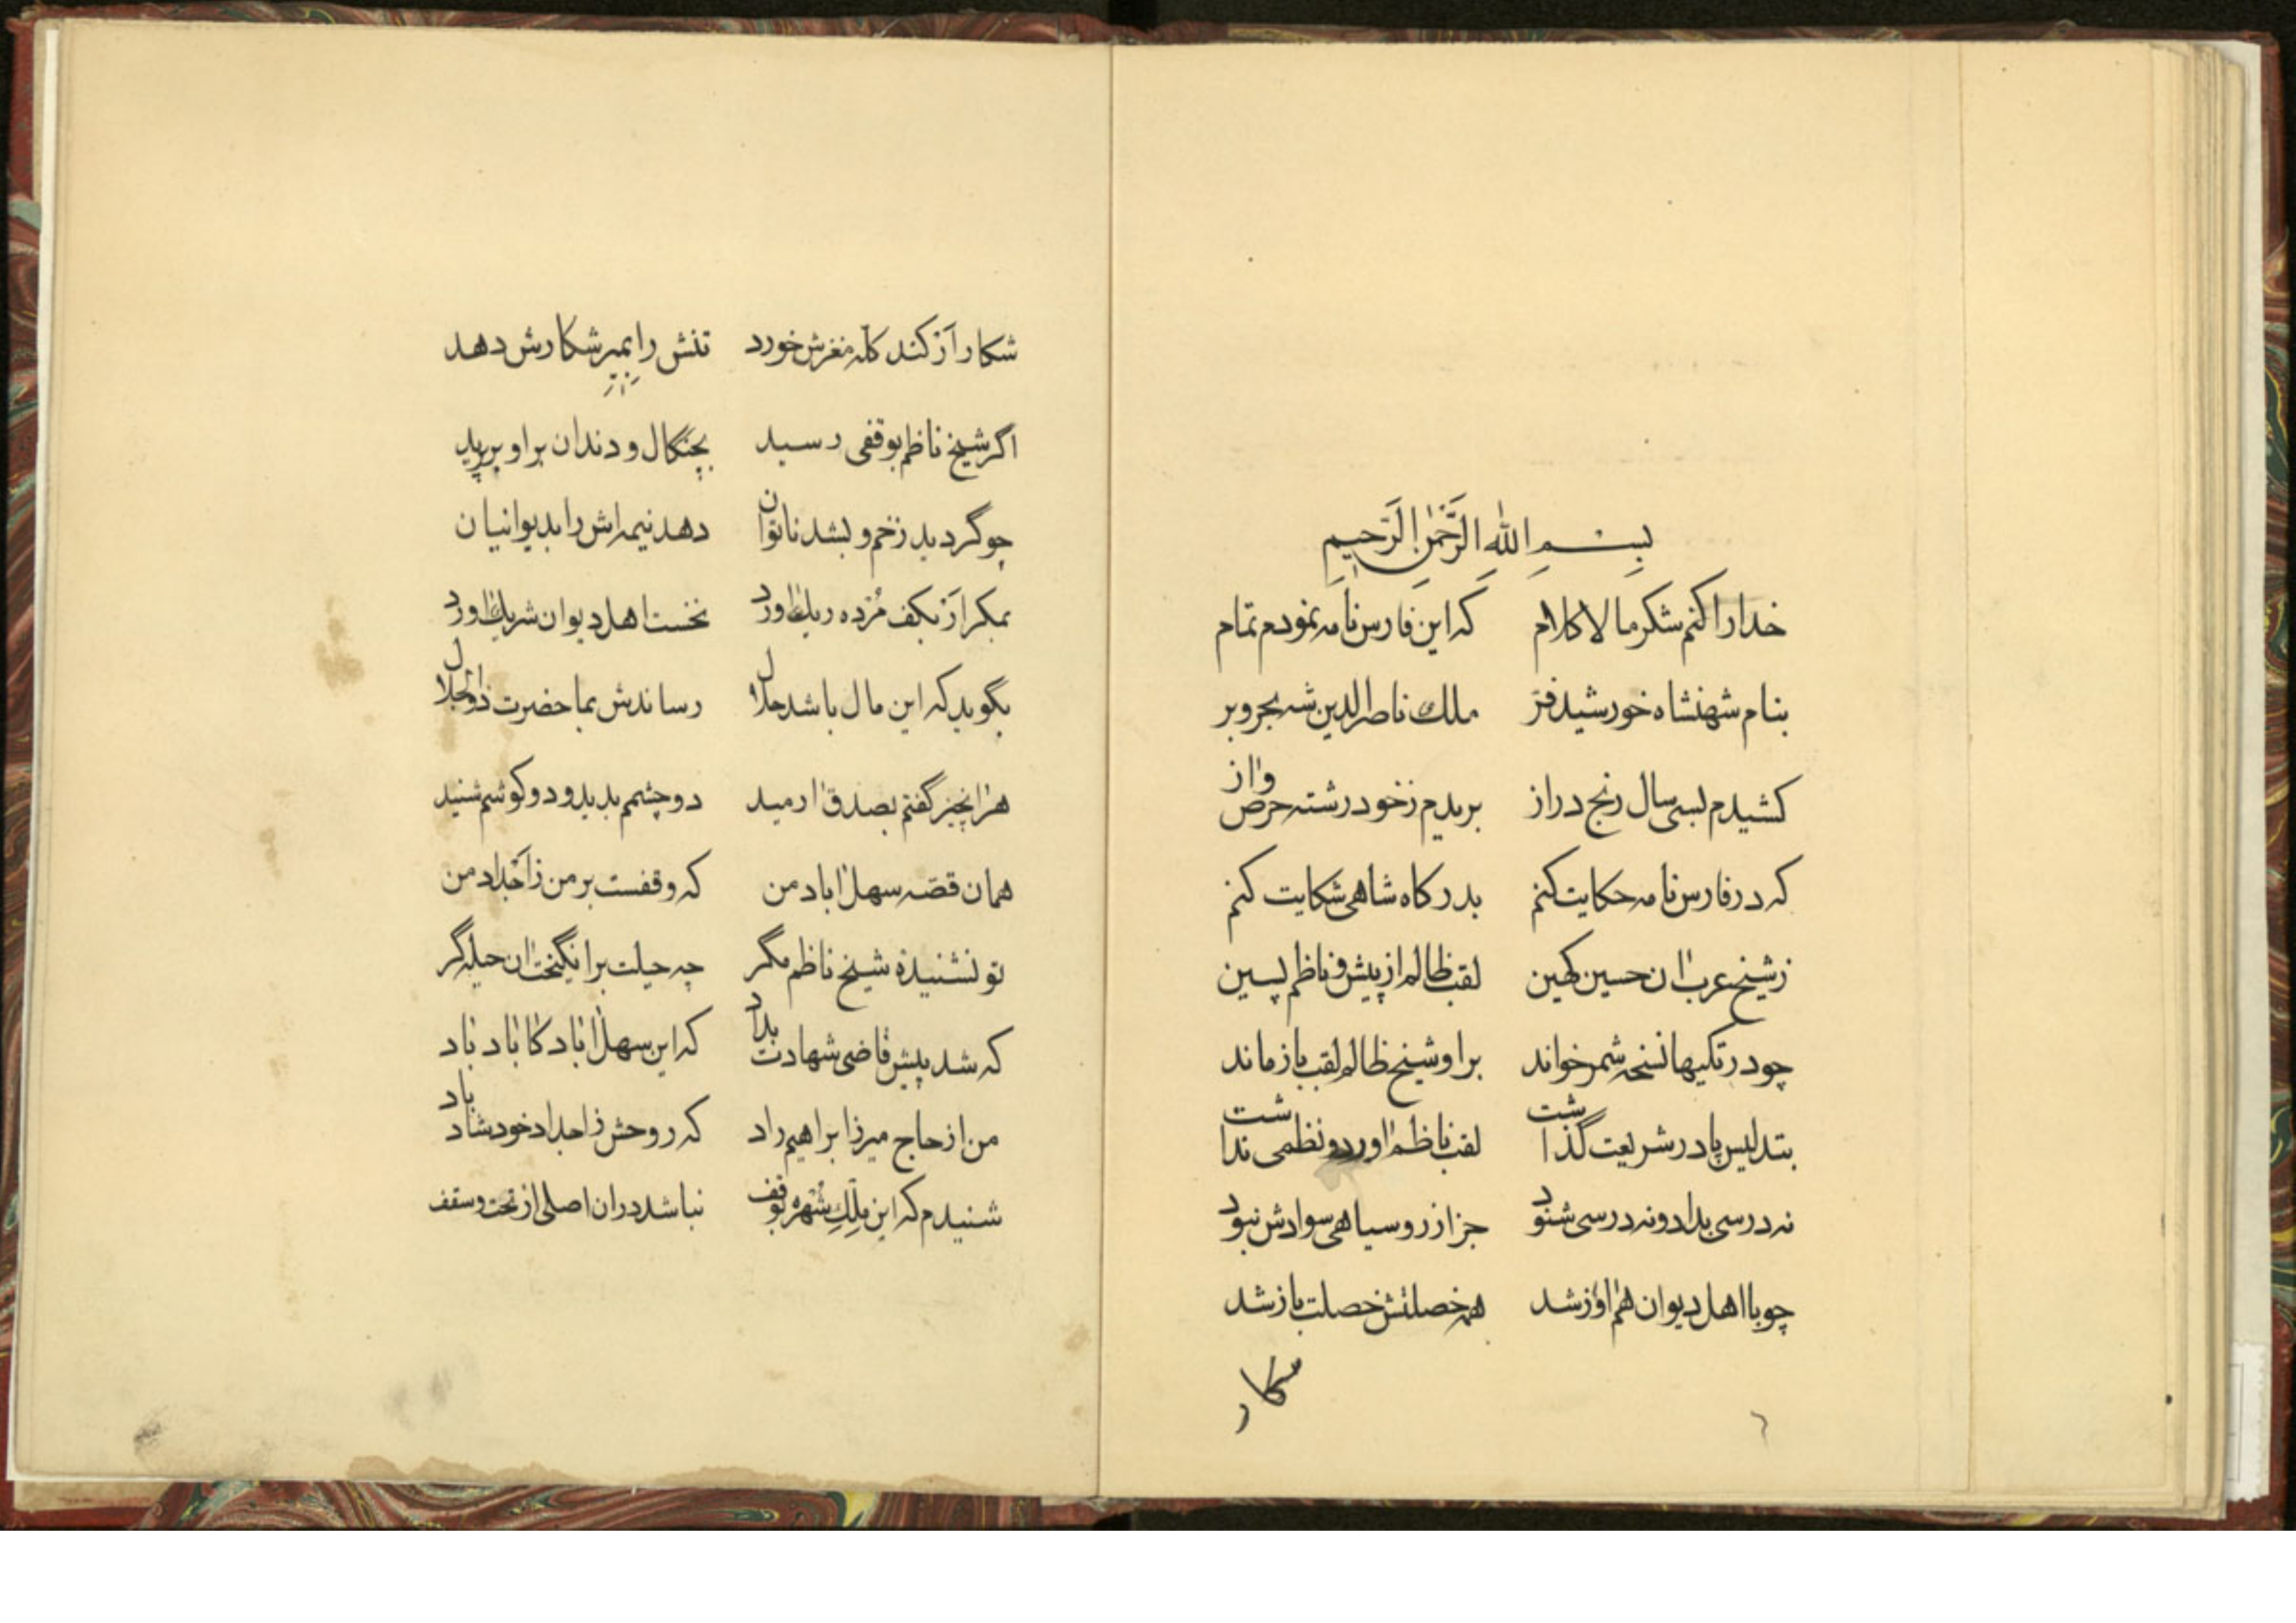 بسم الله الرحمن الرحیم
خدا را کنم شکر مالاکلام که این فارس نامه نمودم تمام
بنام شهنشاه خورشید فر ملک ناصرالدین شه بحر و بر
کشیدم بسی سال رنج دراز بریدم ز خود رشته حرص و از
که در فارس نامه حکایت کنم بدرکاه شاهی شکایت کنم
ز شیخ عرب ان حسین کهین لقب ظالم از پیش و ناظم پسین
چو در تکیها نسخه شمر خواند براو شیخ ظالم لقب بازماند
بتدلیس پا در شریعت گذاشت لقب ناظم اورد و نظمی نداشت
نه درسی بداد و نه درسی شنود جز از روسیاهی سوادش نبود
چو با اهل دیوان هم اواز شد همه خصلتش خصلت باز شد
شکار
شکار آز کند کله مغزش خورد تنش را بمیر شکارش دهد
اگر شیخ ناظم بوقفی رسید بچنگال و دندان بر او بر پرید
چو گردید زخم و بشد ناتوان دهد نیمه اش را بدیوانیان
بمکر از بکف مرده ریک اورد نخست اهل دیوان شریک اورد
بگوید که این مال باشد حلال رساندش بما حضرت ذوالجلال
هرانچیز گفتم بصدق ارمید دو چشمم بدید و دو کوشم شنید
همان قصه سهل اباد من که وقفست بر من ز اجداد من
تو نشنیدهٔ شیخ ناظم مگر چه حیلت برانگیخت ان حیله گر
که شد پیش قاضی شهادت بداد که این سهل اباد کاباد باد
من از حاج میرزا براهیم راد که روحش ز اجداد خود شاد باد
شنیدم که این ملک شهره بوقف نباشد در ان اصلی از تحت و سقف